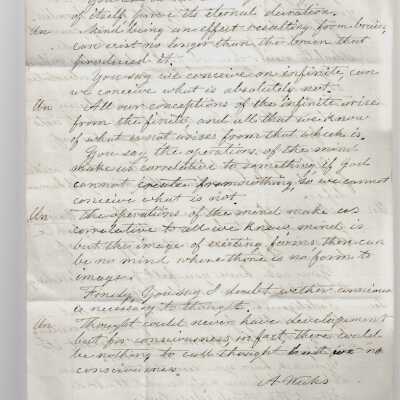 of itself prove its eternal duration.
An Mind being an effect resulting from brain,
can exist no longer than the brain that
produced it.
You say we conceive an infinite, can
we conceive what is absolutely not.
An All our conceptions of the infinite arise
from the finite, and all that we know
of what is not arises from that which is.
You say the operations of the mind
make us correlative to something, if God
cannot create from nothing, so we cannot
conceive what is not.
An The operations of the mind make us
correlative to all we know, mind is
but the image of existing forms, there can
be no mind where there is no form to
image.
You say I doubt wether conscious
is necessary to thought.
An Thought could never have development
but for consciousness, in fact, there could
be nothing to call thought but we no
consciousness.
A Weeks